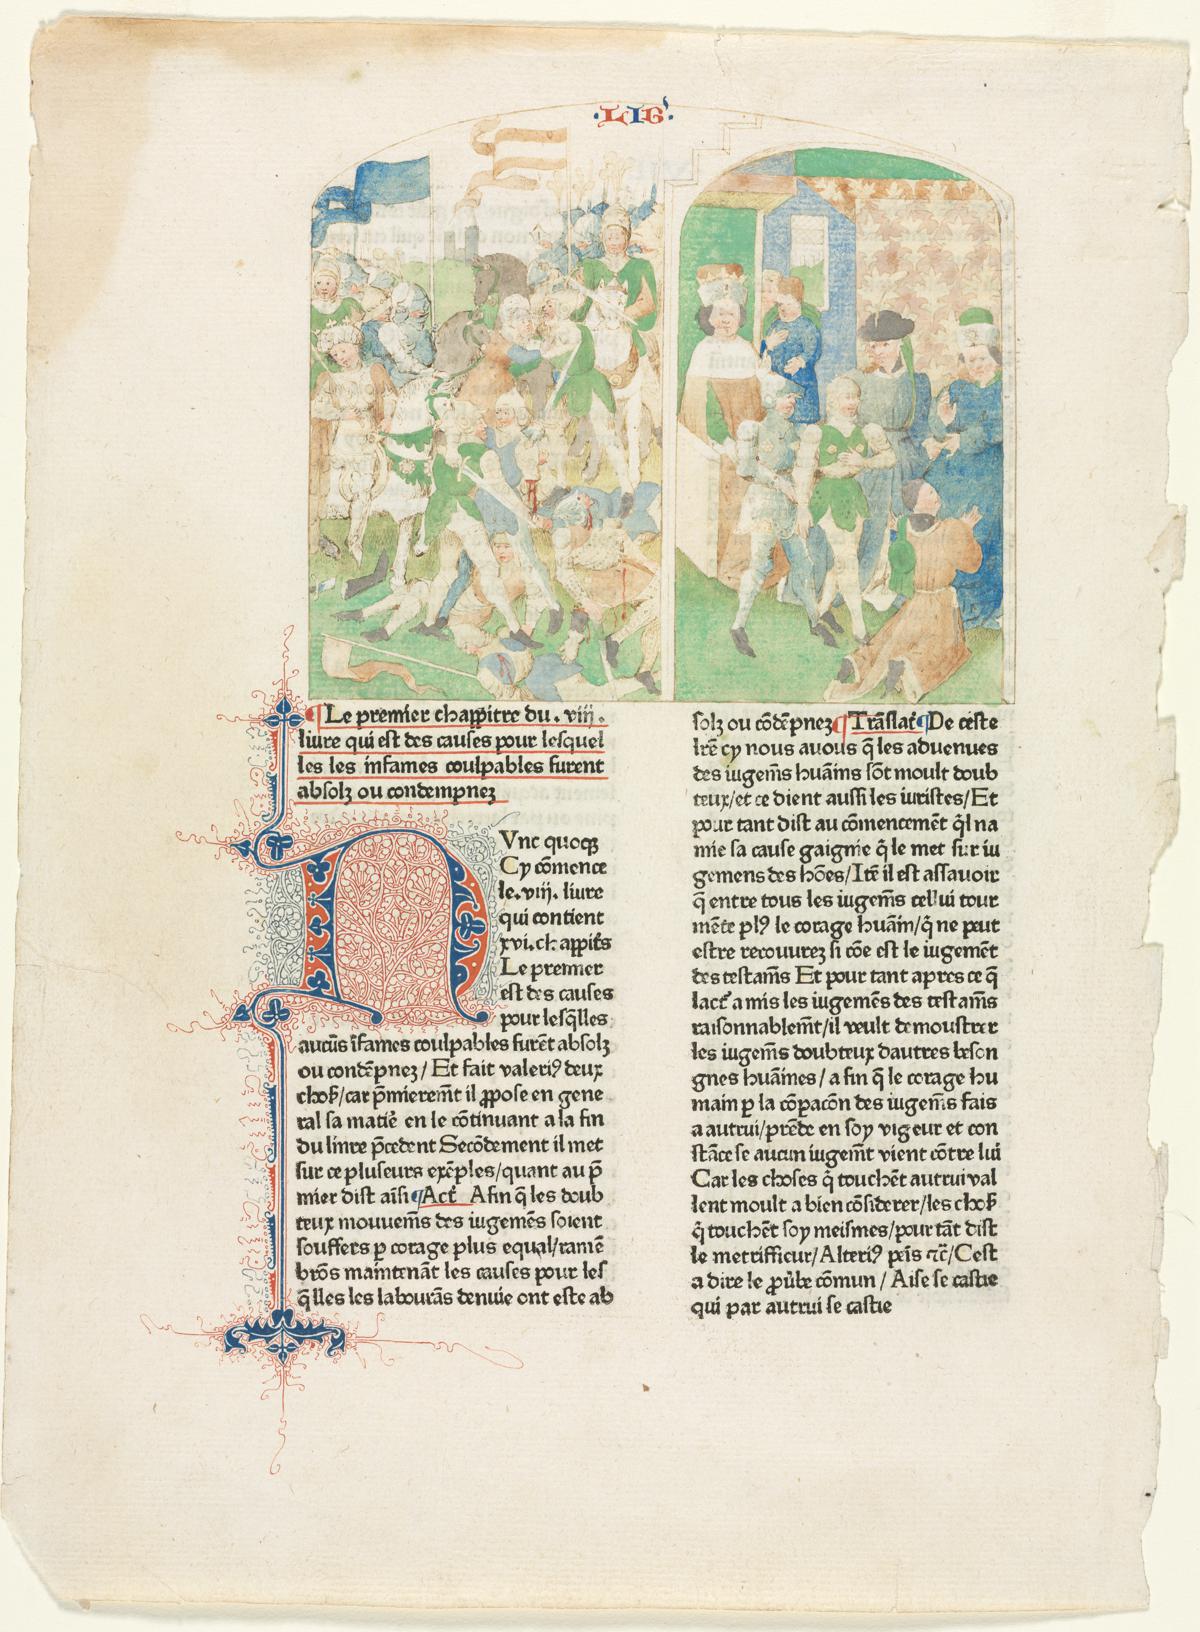 ·LIG·
¶Le premier chappitre du .viij.
liure qui est des causes pour lesquel
les les infames coulpables furent
absolz ou condempnez
NVnc quoqꝫ
Cy cōmence
le .viij. liure
qui contient
xvi. chappit̄s
Le premier
est des causes
pour lesq̄lles
aucūs īfames coulpables furēt absolz
ou condēpnez / Et fait valeriꝰ deux
choſ/ car p̄mieremt̄ il ꝓpose en gene
ral sa matiē en le cōtinuant a la fin
du liure p̄cedent Secōdement il met
sur ce pluseurs exēples/ quant au p̄
mier dist aīsi ¶Act̄ Afin q̄ les doub
teux mouuem̄s des iugemēs soient
souffers p corage plus equal/ramē
brōs maintenāt les causes pour les
q̄lles les labourās denuie ont este ab
solz ou cōdēpnez ¶Trāslat̄ ¶De ceste
lrē cy nous auons q̄ les aduenues
des iugem̄s huāins sōt moult doub
teux/et ce dient aussi les iuristes/Et
pour tant dist au cōmencemēt q̄l na
mie sa cause gaignie q̄ le met sur iu
gemens des hōes/Itē il est assauoir
q̄ entre tous les iugem̄s cellui tour
mēte plꝰ le corage huāin/q̄ ne peut
estre recouurez si cōe est le iugemēt
des testam̄s Et pour tant apres ce q̄
lact̄ a mis les iugemēs des testam̄s
raisonnablemt̄/il veult demoustrer
les iugem̄s doubteux dautres beson
gnes huāines/ a fin q̄ le corage hu
main p la cōpacōn des iugem̄s fais
a autrui/prēde en soy vigeur et con
stāce se aucun iugemt̄ vient cōtre lui
Car les choses q̄ touchēt autrui val
lent moult a bien cōsiderer/les choſ
q̄ touchēt soy meismes/pour tāt dist
le metrifficur/Alteriꝰ peīs ⁊c̄/Cest
a dire le ꝓūbe cōmun / Aise se castie
qui par autrui se castie